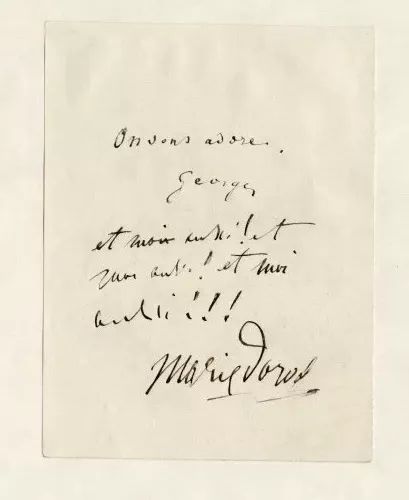 On vous adore.
George
et moi aussi! et
moi aussi! et moi
aussi!!!
Marie Dorval